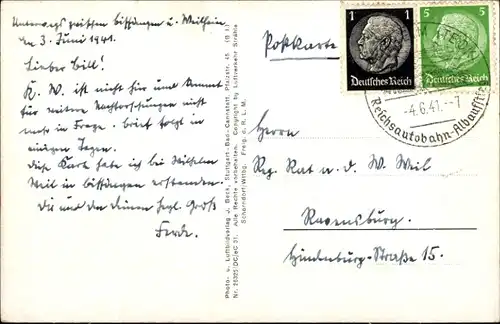 Unterwegs zwischen Bissingen u. Weilheim
am 3. Juni 1941.
Lieber Bill!
K. W. ist nicht hier und kommt
für weitere Nachforschungen nicht
mehr in Frage. Brief folgt in
einigen Tagen.
Diese Karte habe ich bei Wilhelm
Weil in Bissingen erstanden.
Dir und den Deinen herzl. Gruß
Ferde.
Photo- u. Luftbildverlag J. Beck, Stuttgart-Bad-Cannstatt, Pfalzstr. 45
Alle Rechte vorbehalten. Copyright by Luftverkehr Strähle
Schorndorf/Wttbg. Freig. d. R. L. M.
Postkarte
1 1
Deutsches Reich
5 5
Deutsches Reich
-4.6.41.-7
Reichsautobahn-Albaufstieg
Herrn
Reg. Rat a. d. W. Weil
Ravensburg.
Hindenburg-Straße 15.